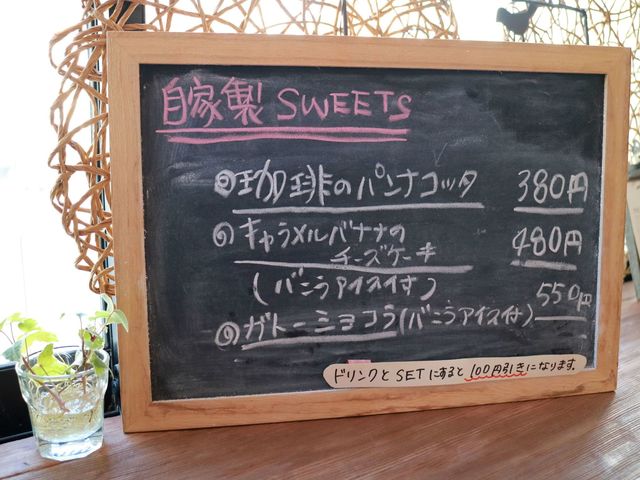 自家製 SWEETS
珈琲のパンナコッタ 380円
キャラメルバナナの
チーズケーキ 480円
(バニラアイス付)
ガトーショコラ(バニラアイス付) 550円
ドリンクとSETにすると100円引きになります。